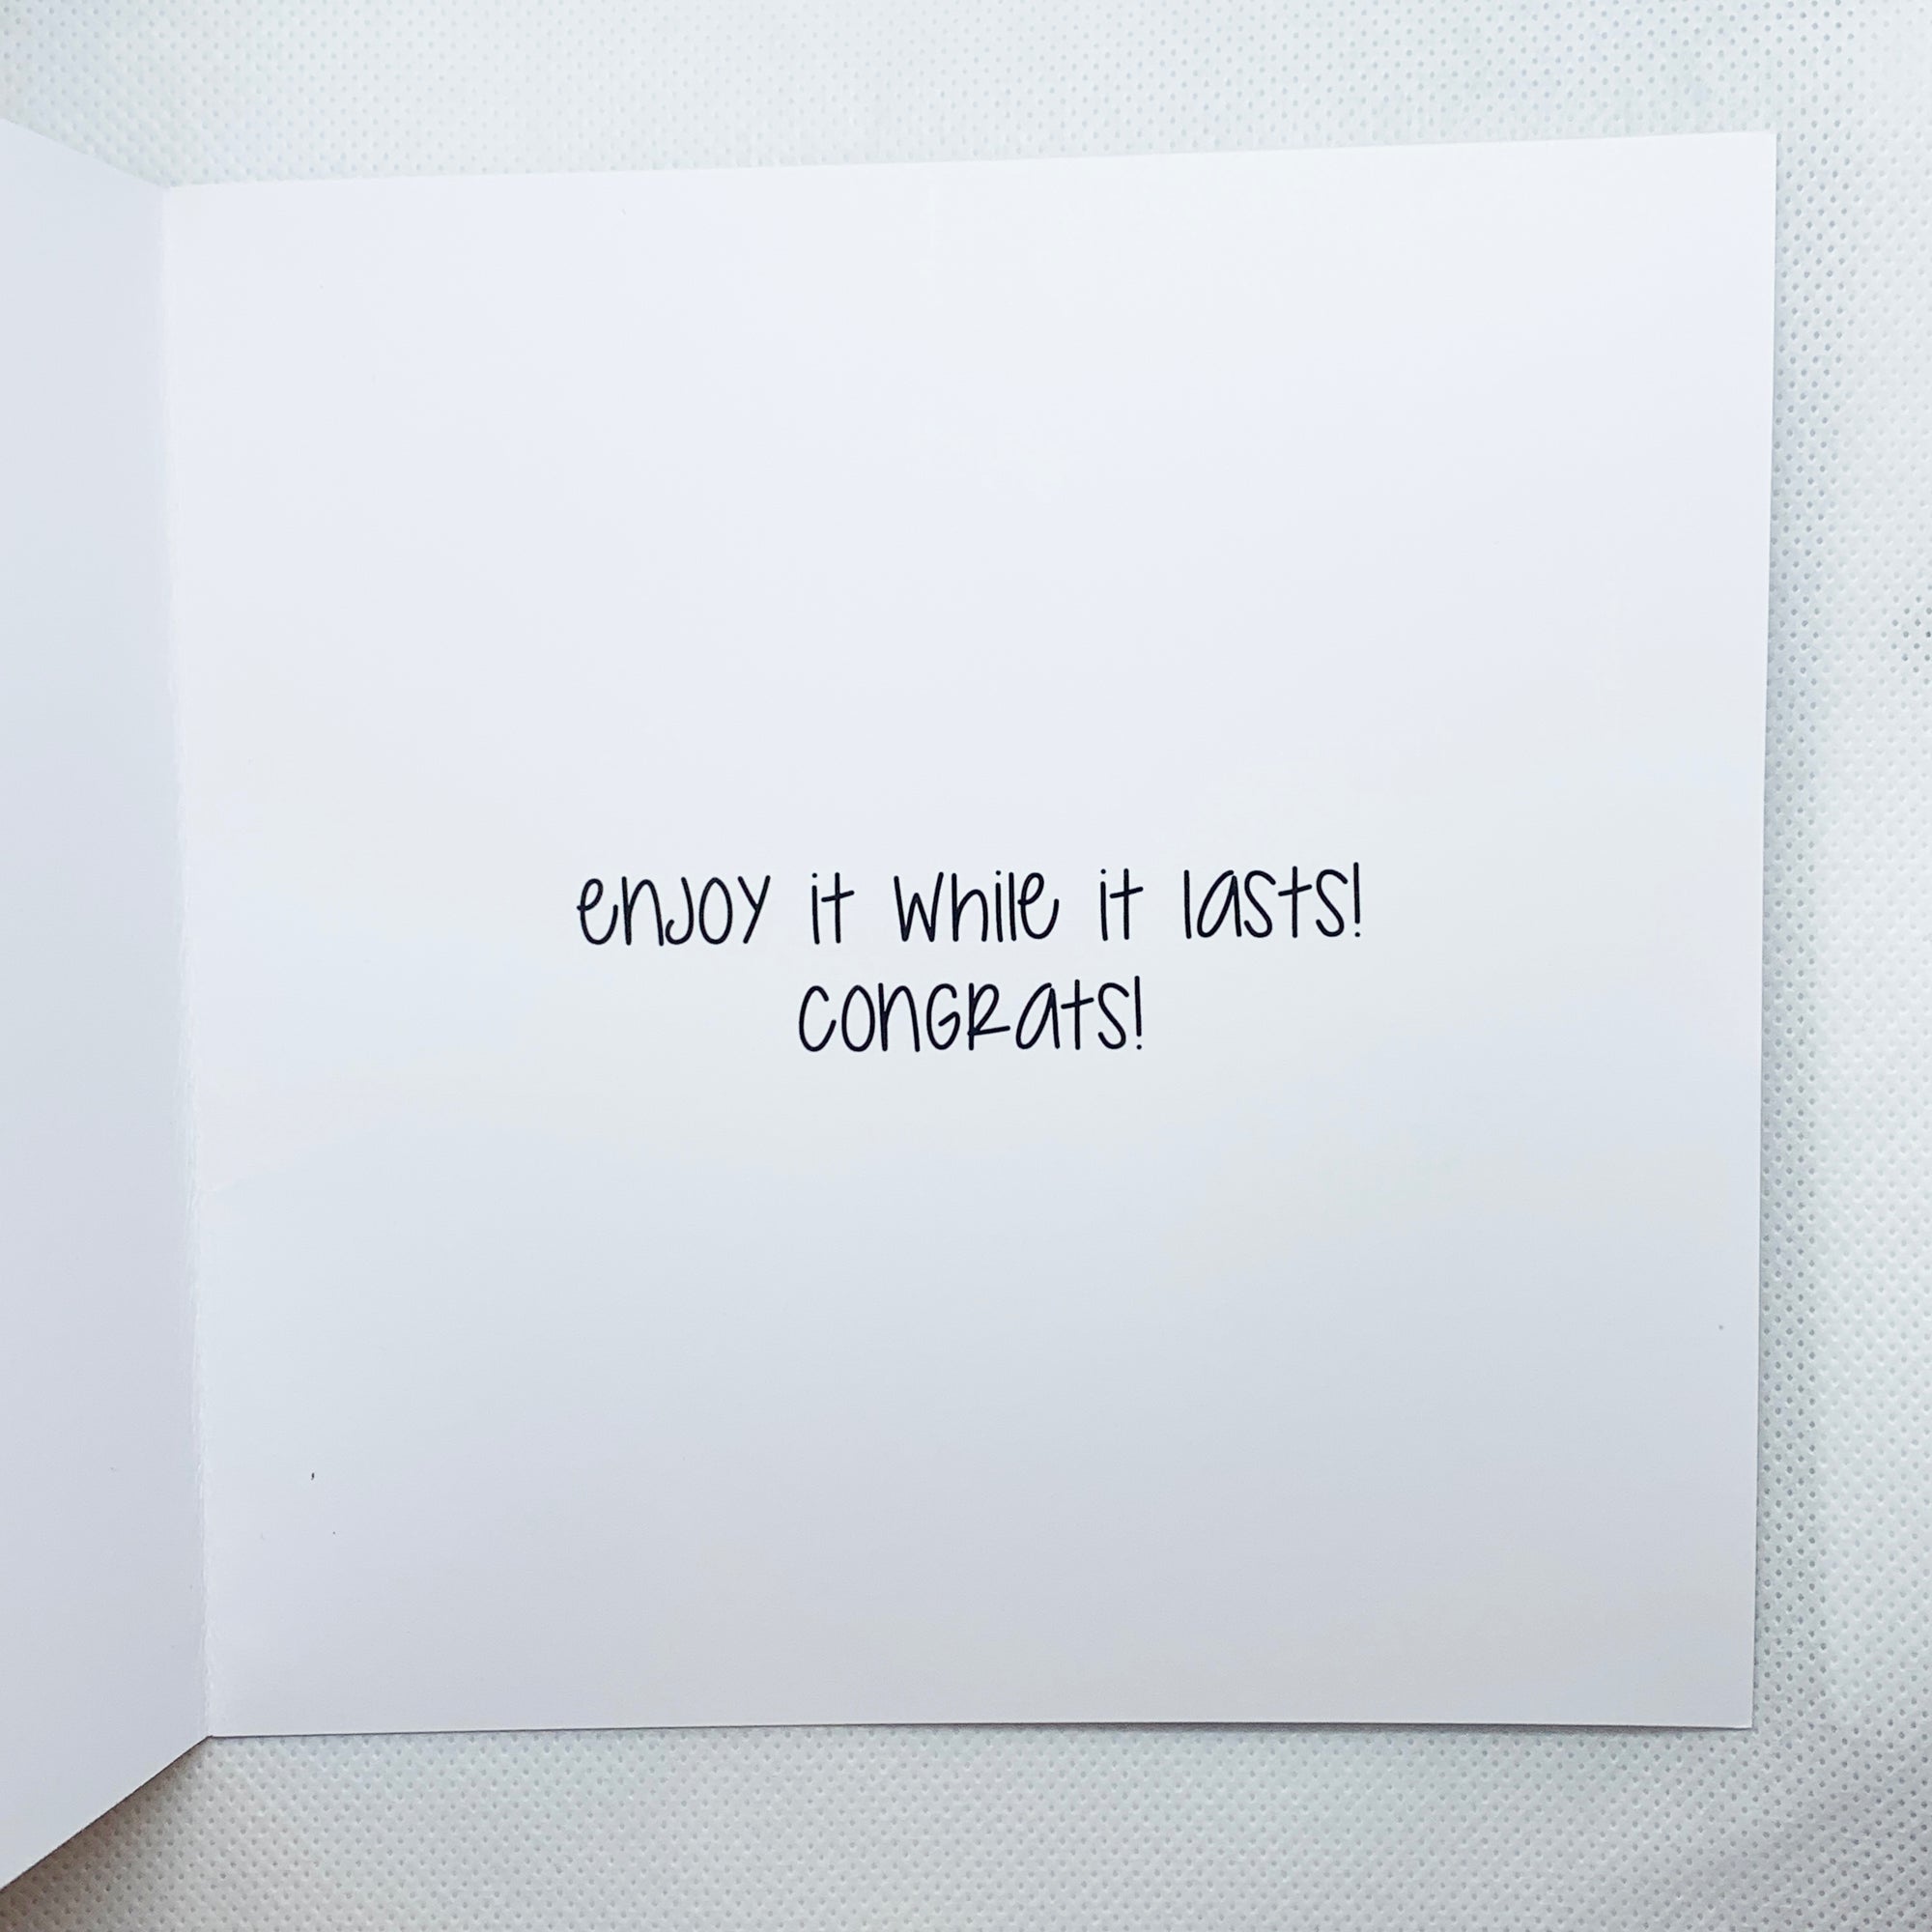 enjoy it while it lasts!
congrats!